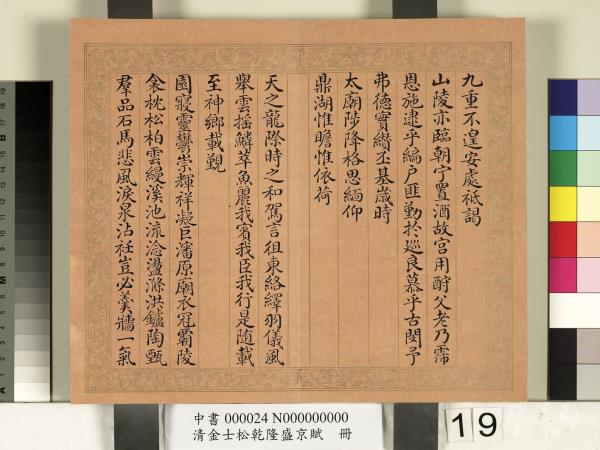 九重不遑安處祗謁
山陵亦臨朝宁置酒故宮用酧父老乃霈
恩施逮乎編户匪勤於巡良慕乎古閔予
弗德實纘丕基歲時
太廟陟降格思緬仰
鼎湖惟瞻惟依荷
天之龍際時之和駕言徂東絡繹羽儀風
舉雲搖鱗萃魚麗我賓我臣我行是随載
至神鄉載覲
園寢靈鬱崇輝祥凝巨瀋原廟衣冠霸陵
衾枕松柏雲縵溪池流淰盪滌洪鑪陶甄
羣品石馬悲風淚泉沾衽豈必羹牆一氣
中書 000024 N000000000
清金士松乾隆盛京賦 冊
19